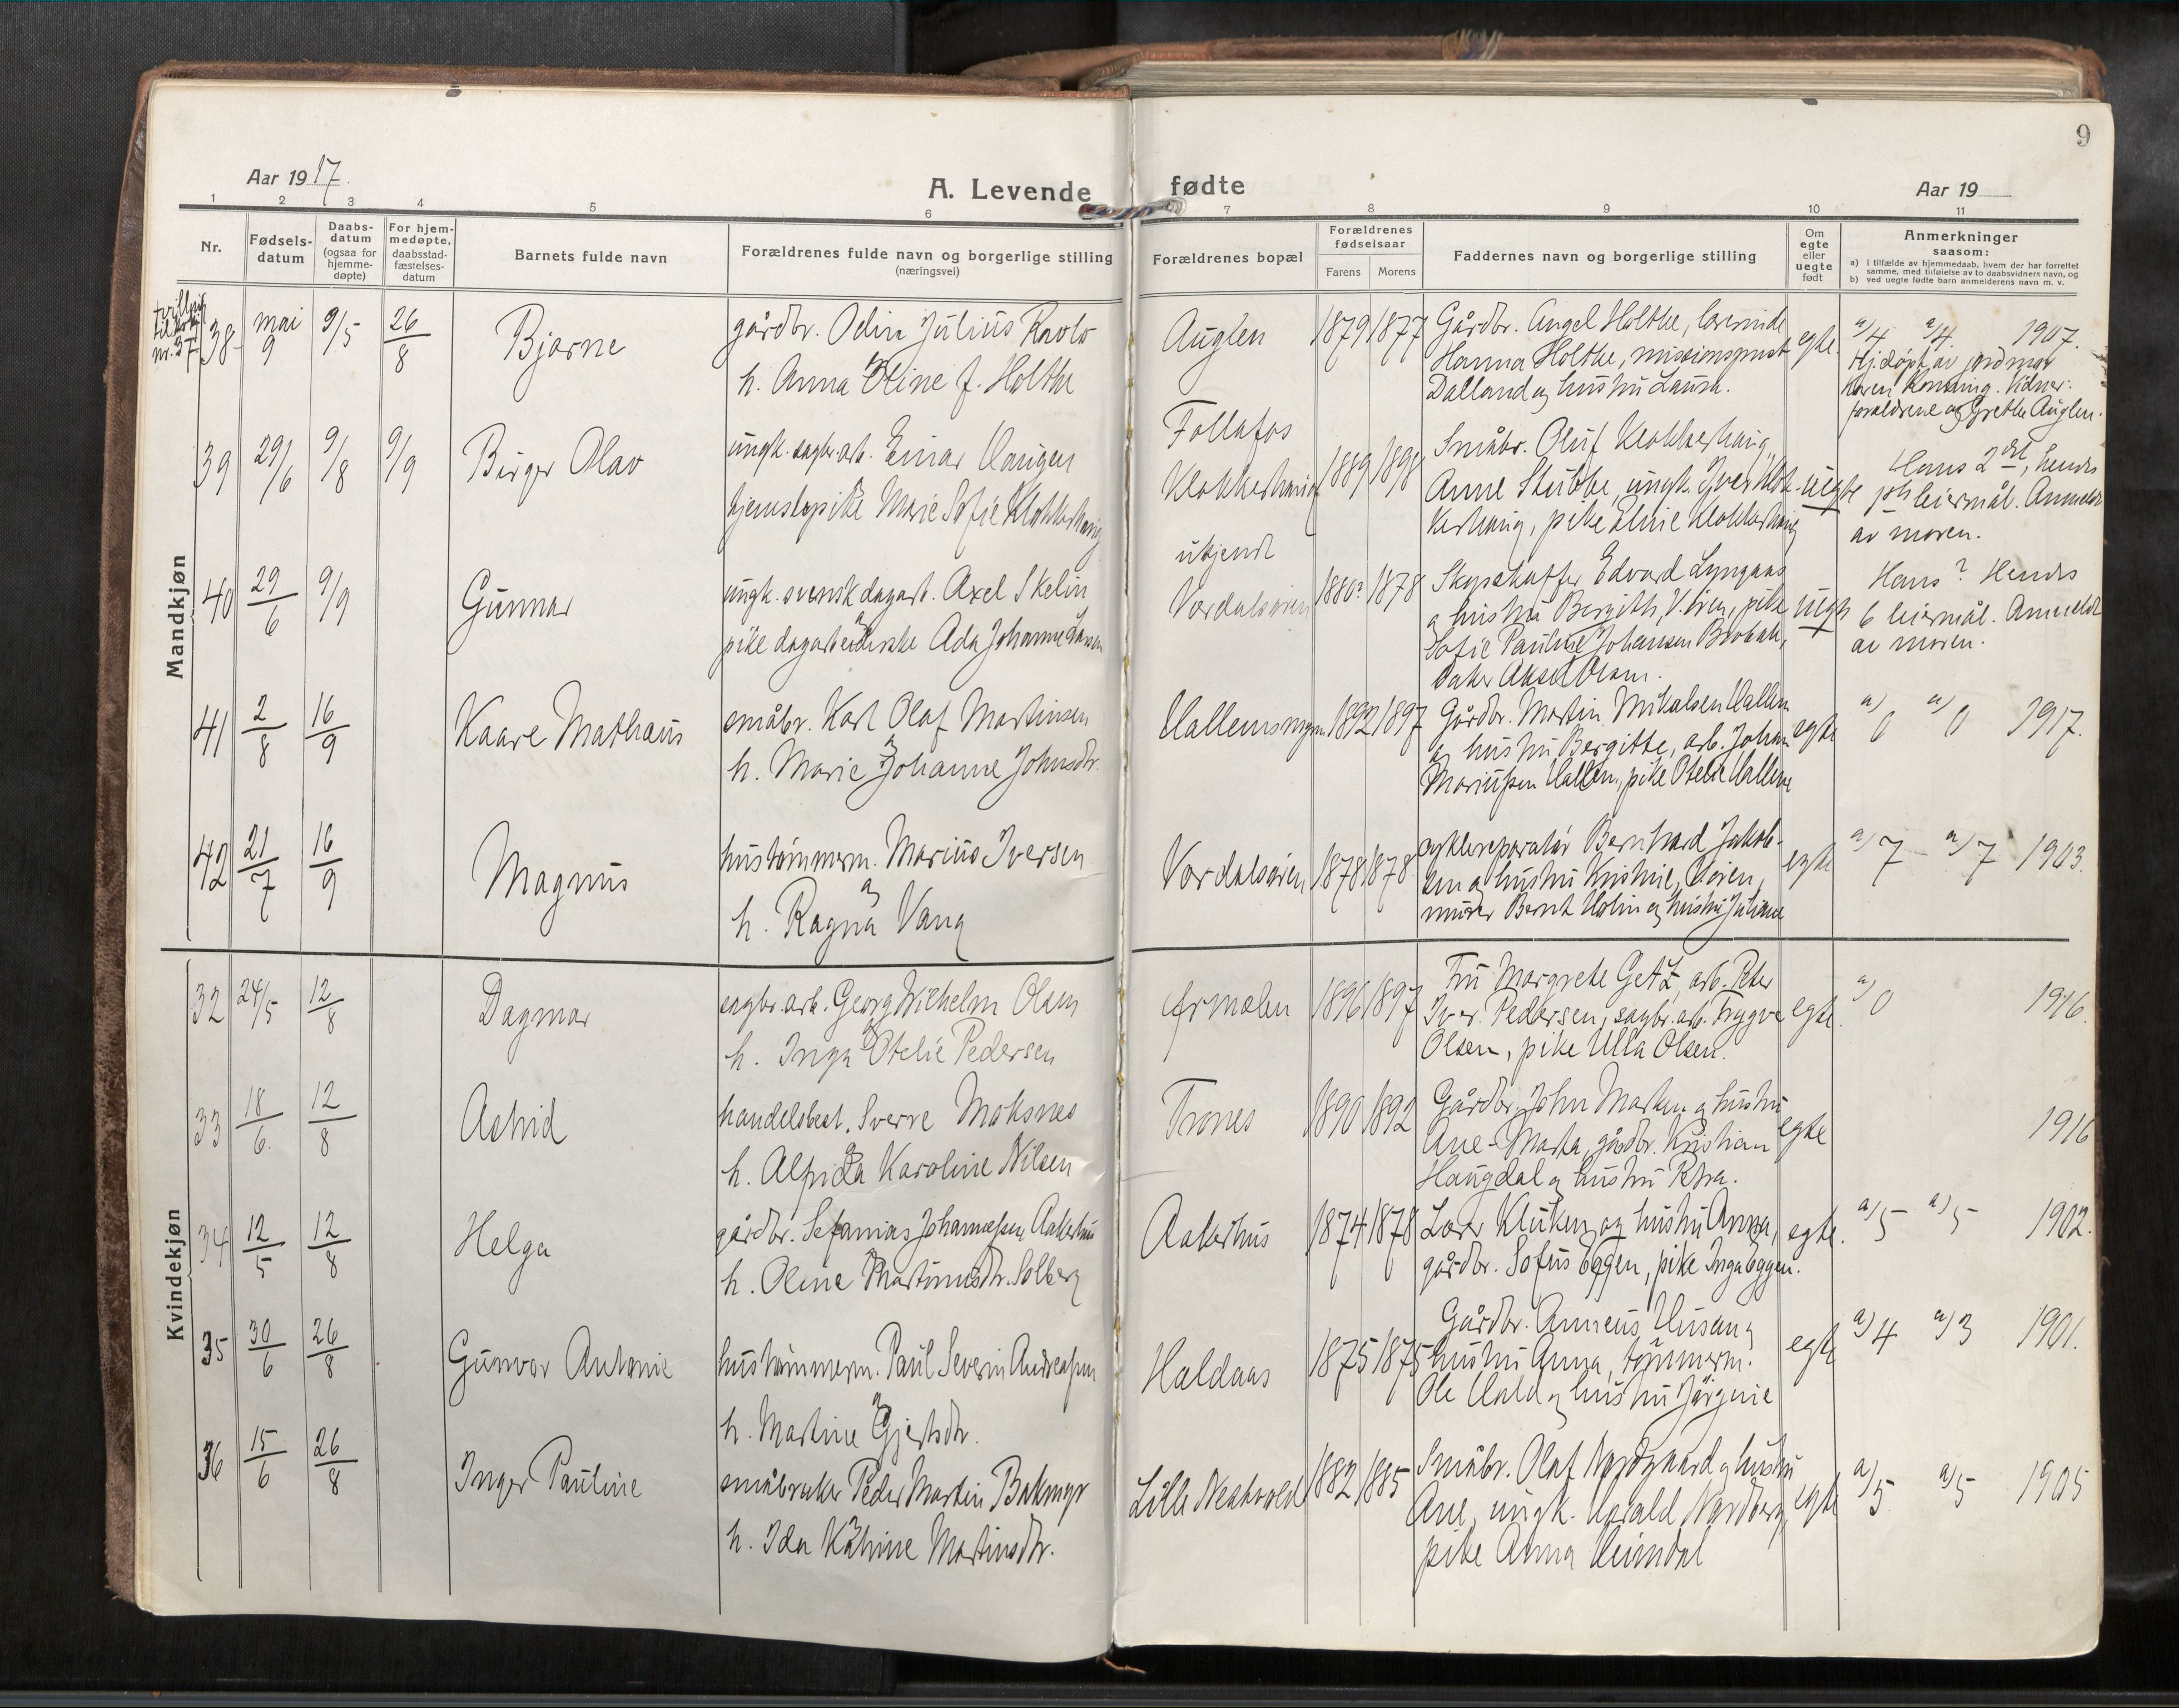 9
Aar 1917.
A. Levende fødte
Aar 19
1 2 3 4 5 6 7 8 9 10 11
Nr.
Fødsels-
datum
Daabs-
datum
(ogsaa for
hjemme-
døpte)
For hjem-
medøpte,
daabsstad-
fæstelses-
datum
Barnets fulde navn
Forældrenes fulde navn og borgerlige stilling
(næringsvei)
Forældrenes bopæl
Forældrenes
fødselsaar
Farens Morens
Faddernes navn og borgerlige stilling
Om
egte
eller
uegte
født
Anmerkninger
saasom:
a) i tilfælde av hjemmedaab, hvem der har forrettet
samme, med tilføielse av to daabsvidners navn, og
b) ved uegte fødte barn anmelderens navn m. v.
Mandkjøn
tvilling
til
nr. 37
38
mai
9
9/5
26/8
Bjarne
gårdbr. Odin Julius
h. Anna Oline f. Holthe
Auglen
1879 1877
Gårdbr. Angel Holthe, lærerinde
Hanna Holthe, missionsprest
Dalland og hustru Laura.
egte.
a) 4 a) 4. 1907.
Hj.døpt av jordmor
Karen Rønning. Vidner:
forældrene og Grethe Auglen.
39
29/6
9/8
9/9
Birger Olav
ungk. sagbr.arb. Einar
tjenestepike Marie Sofie Klokkerhaug
Follafos
Klokkerhaug
1889 1898
Småbr. Oluf Klokkerhaug,
Anne Stubbe, ungk. Iver Klok-
kerhaug, pike Elvie Klokkerhaug
uegte
Hans 2det, hendes
1ste leiermål. Anmeldt
av moren.
40
29/6
9/9
Gunnar
ungk. svensk dagarb. Axel Skelin
pike dagarbeiderske Ada Johanne Larsen
ukjendt
Verdalsøren
1880? 1878
Skysskaffer Edvard Lyngaas
og hustru Bergith, V.ören, pike
Sofie Pauline Johansen
baker Aksel Olsen.
uegte
Hans? Hendes
6 leiermål. Anmeldt
av moren.
41
2/8
16/9
Kaare Mathæus
småbr. Karl Olaf Martinsen
h. Marie Johanne Johnsdtr.
Hallemsmyren
1892 1897
Gårdbr. Martin Mikalsen Hallem
og hustru Bergitte, arb. Johan
Mariussen Hallem, pike Otelie Hallem
egte
a) 0 a) 0 1917.
42
21/7
16/9
Magnus
hustømmerm. Marius Iversen
h. Ragna Vang
Verdalsøren
1878 1878
cyklereparatør Bernhard Jakob-
sen og hustru Kristine, V.øren,
murer Bernt Holin og hustru Juliane
egte
a) 7 – a) 7 1903.
Kvindekjøn
32
24/5
12/8
Dagmar
sagbr.arb. Georg Wilhelm Olsen
h. Inga Otelie Pedersen
Ørmelen
1896 1897
Fru Margrete Getz, arb. Peter
Iver Pedersen, sagbr.arb. Trygve
Olsen, pike Ulla Olsen.
egte.
a) 0 1916.
33
18/6.
12/8
Astrid
handelsbest. Sverre Moksnes
h. Alfrida Karoline Nilsen
Trones
1890 1892
Gårdbr. John Marken og hustru
Ane-Marta, gårdbr. Kristian
Haugdal og hustru Petra.
egte
1916
34
12/5
12/8
Helga
gårdbr. Sefanias Johannessen Aakerhus
h. Oline Martinusdtr. Solberg
Aakerhus
1874 1878
Lars Kluken og hustru Anna,
gårdbr. Sofus Eggen, pike Inga Eggen.
egte.
a) 5 a) 5 1902.
35
30/6
26/8
Gunvor Antonie
hustømmerm. Paul Severin Andreassen
h. Martine Gjertsdtr.
Haldaas
1875 1875
Gårdbr. Anneus Husan og
hustru Anna, tømmerm.
Ole Hald og hustru Jørgine
egte
a) 4 a) 3 1901.
36
15/6
26/8
Inger Pauline
småbruker Peder Martin Bakmyr
h. Ida Katrine Martinsdtr.
Lille Nestvold
1882 1885
Småbr. Olaf Nordgaard og hustru
Ane, ungk. Harald Nordberg,
pike Anna Heimdal
egte
a) 5 a) 5 1905